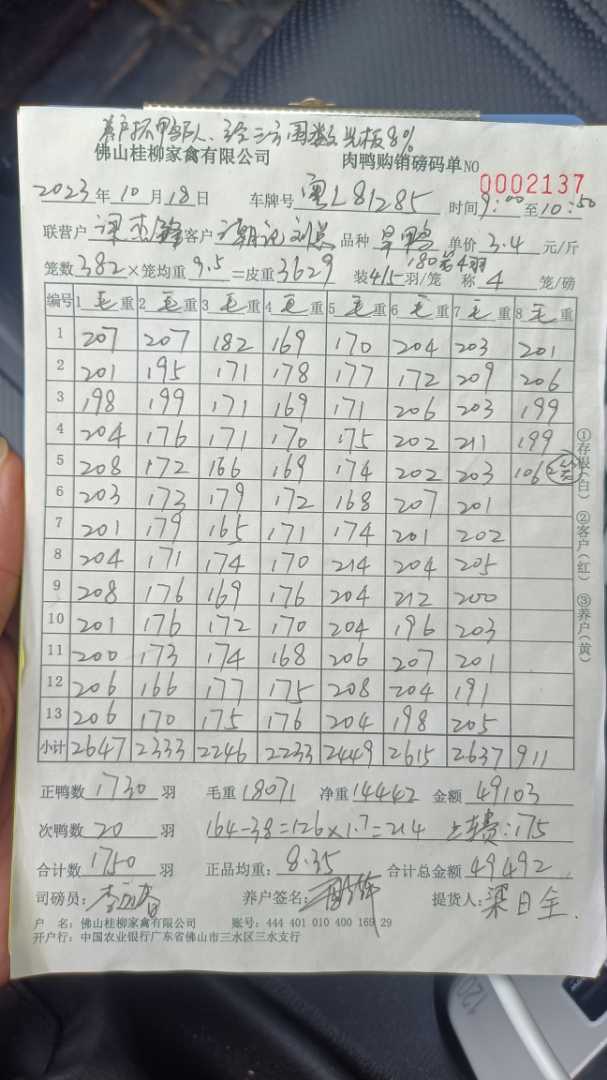 佛山桂柳家禽有限公司 肉鸭购销磅码单 NO 0002137
2023年10月18日 车牌号 粤L81285 时间9:00至10:50
联营户 客户 品种 旱鸭 单价3.4元/斤
180 4羽
笼数382×笼均重9.5=皮重3629 装4/5羽/笼 称4笼/磅
编号 1毛重 2毛重 3毛重 4毛重 5毛重 6毛重 7毛重 8毛重
1 207 207 182 169 170 204 203 201
2 201 195 171 178 177 172 209 206
3 198 199 171 169 171 206 203 199
4 204 176 171 170 175 202 211 199
5 208 172 166 169 174 202 203 106
6 203 173 179 172 168 207 201
7 201 179 165 171 174 201 202
8 204 171 174 170 214 204 205
9 208 176 169 176 204 212 200
10 201 176 172 170 204 196 203
11 200 173 174 168 206 207 201
12 206 166 177 175 208 204 191
13 206 170 175 176 204 198 205
小计 2647 2333 2246 2233 2449 2615 2637 911
①存根(白) ②客户(红) ③养户(黄)
正鸭数1730羽 毛重18071 净重14442 金额49103
次鸭数20羽 164-38=126×1.7=214 上车费:175
合计数1750羽 正品均重:8.35 合计总金额49492
司磅员: 养户签名: 提货人:梁日全.
户 名:佛山桂柳家禽有限公司 账号:444 401 010 400 169 29
开户行:中国农业银行广东省佛山市三水区三水支行